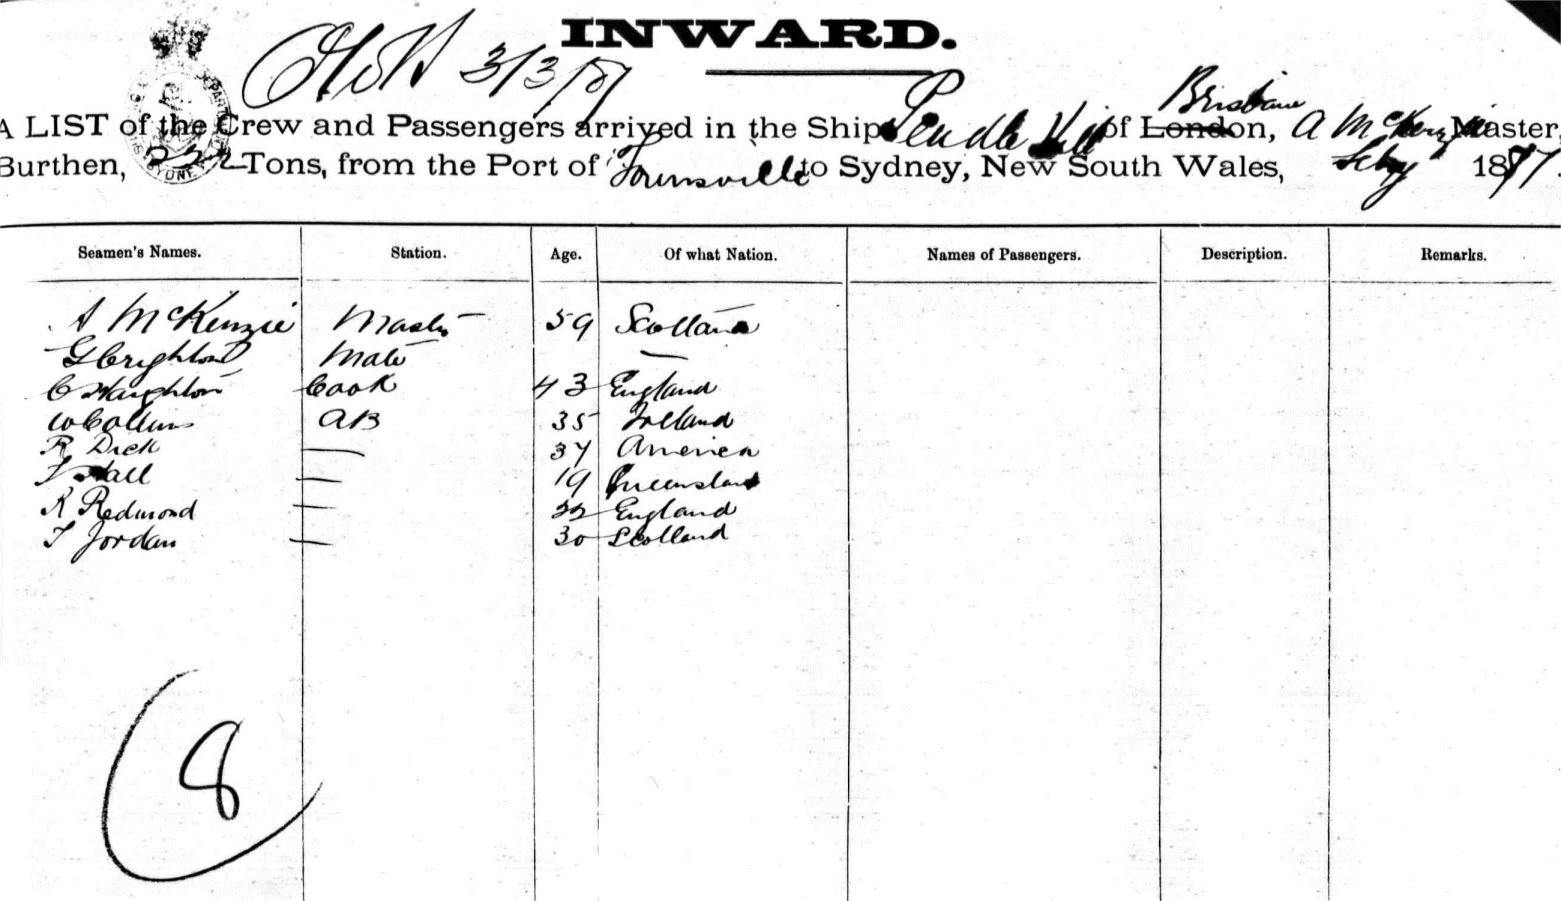 INWARD.
3/3/87
A LIST of the Crew and Passengers arrived in the Ship Pendle Hill of London, Brisbane A McKenzie Master,
Burthen, 222 Tons, from the Port of Townsville to Sydney, New South Wales, 1887.
Seamen's Names. Station. Age. Of what Nation. Names of Passengers. Description. Remarks.
A McKenzie Master 59 Scotland
G Crighton Mate —
C Haughton Cook 43 England
W Collins AB 35 Ireland
R Dick — 37 America
T Hall — 19 Queensland
R Redmond — 22 England
T Jordan — 30 Scotland
8